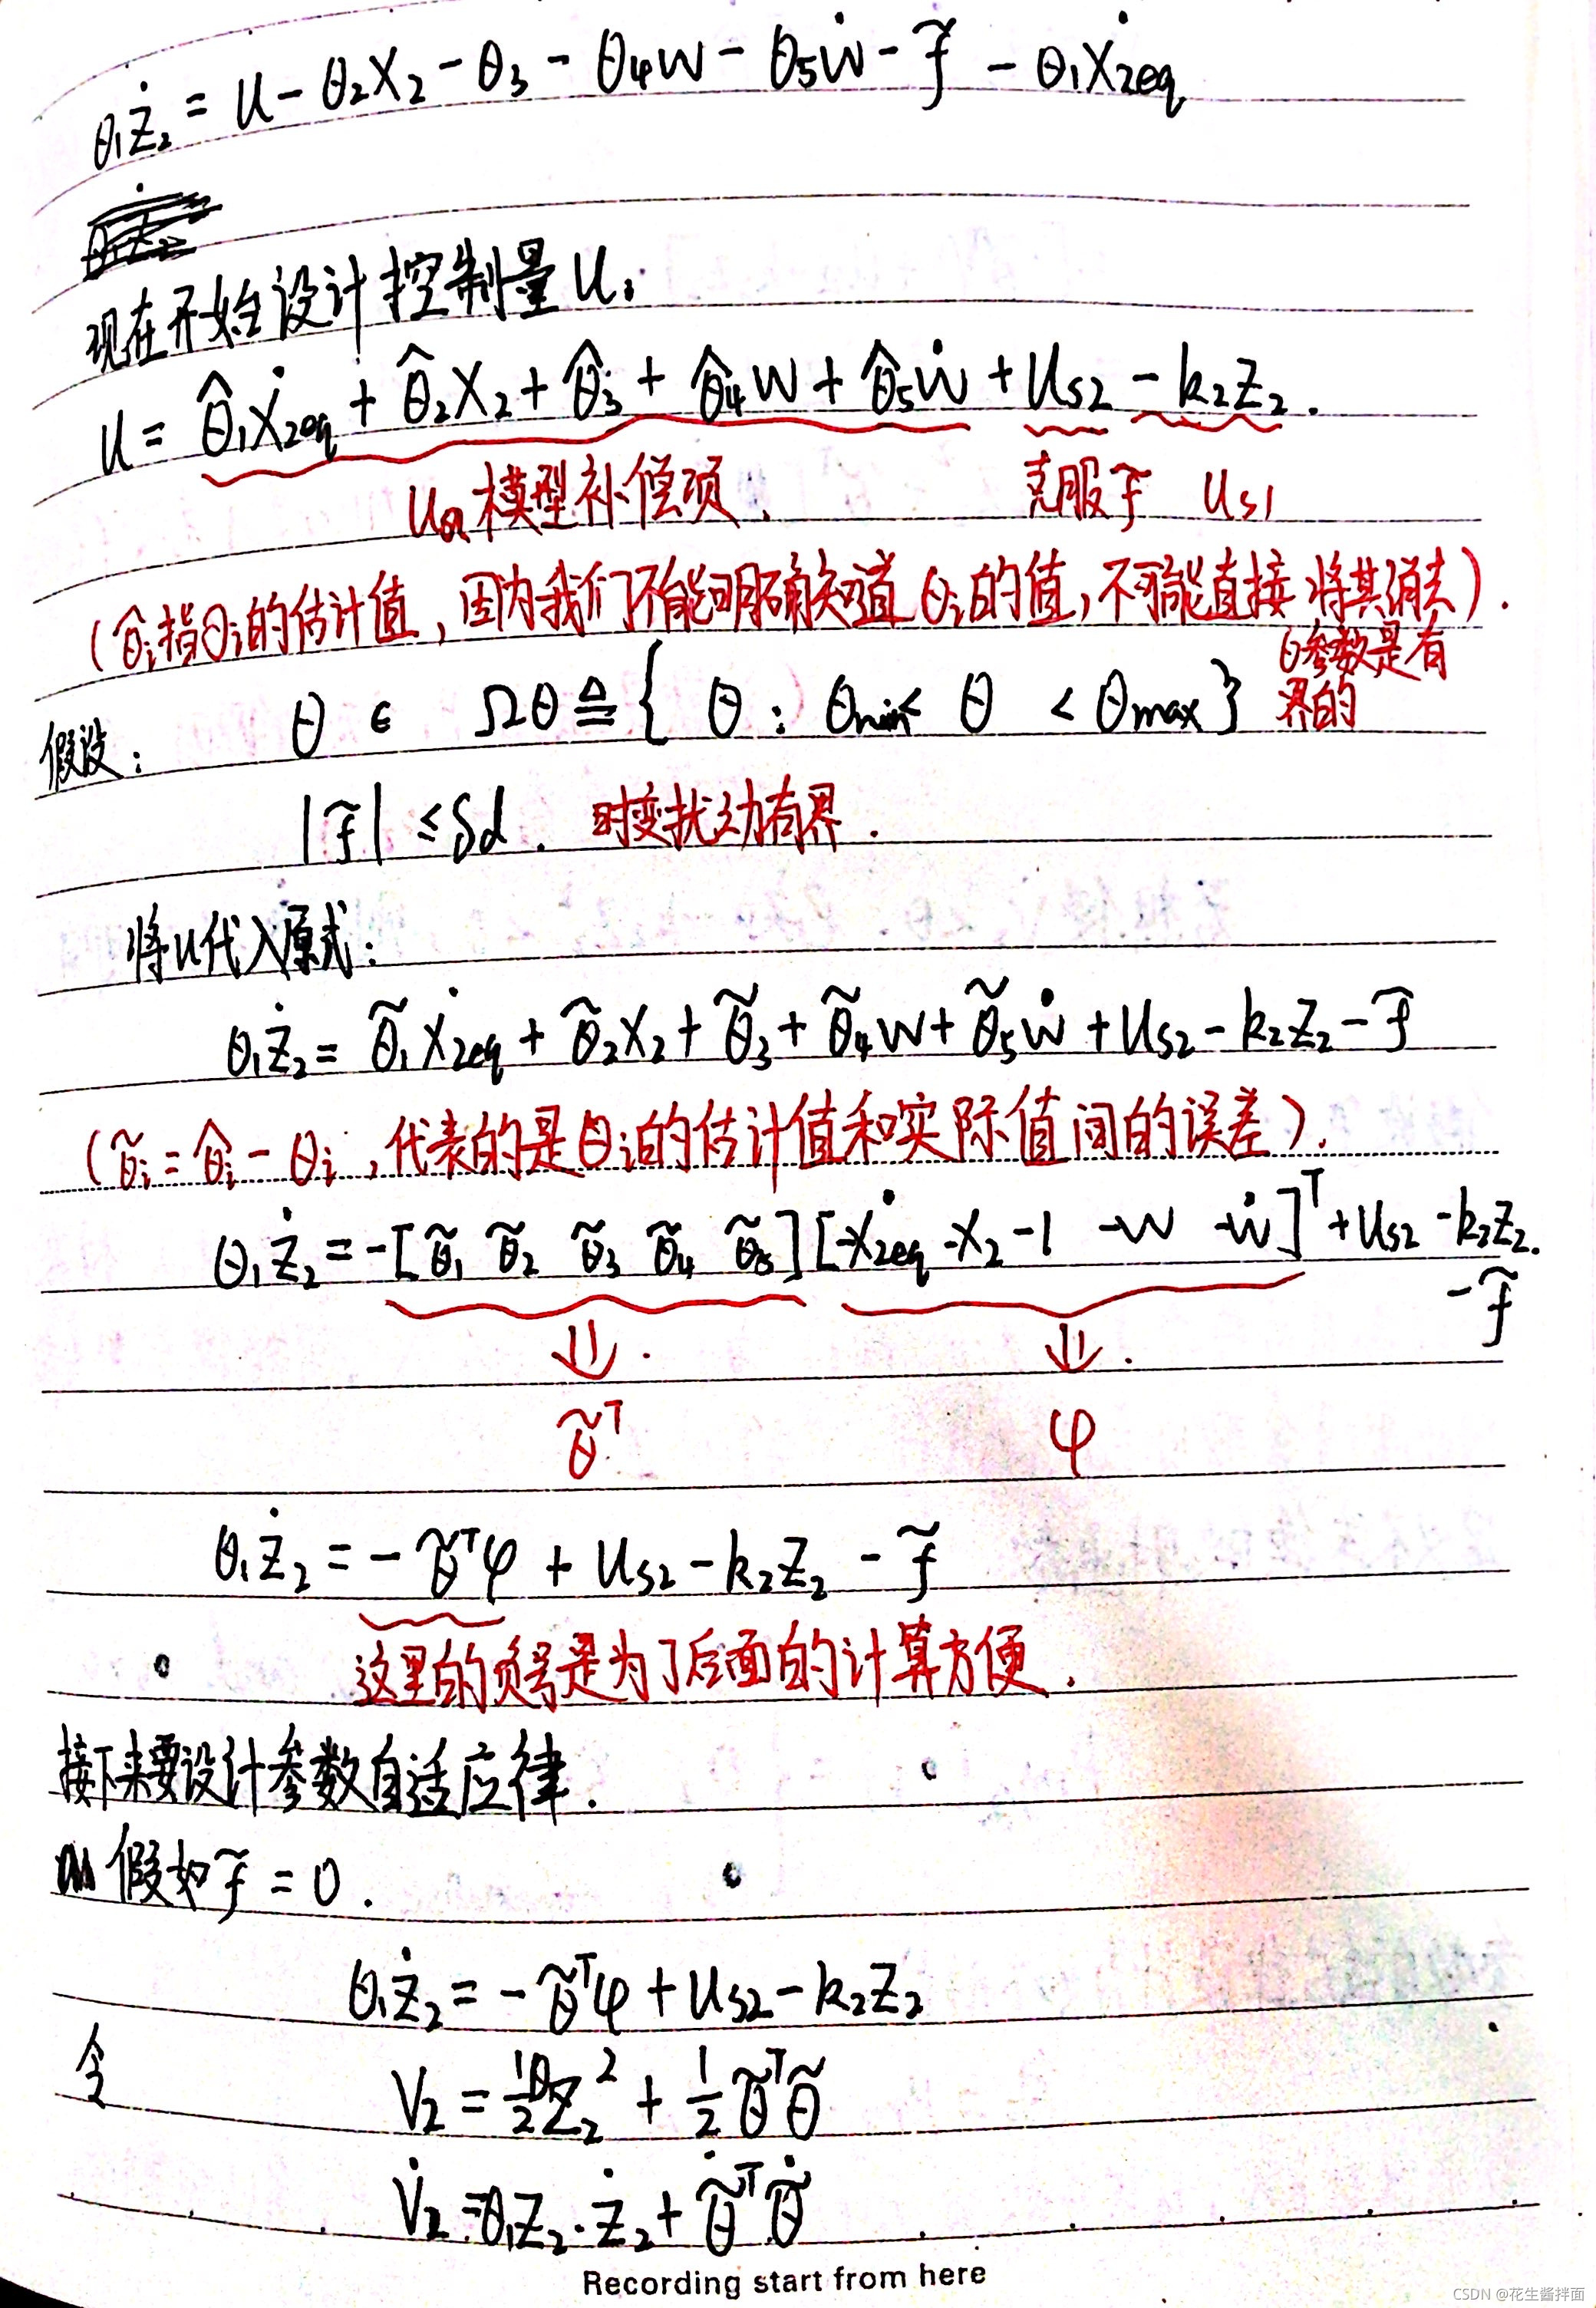 θ₁ż₂ = u - θ₂x₂ - θ₃ - θ₄w - θ₅ẇ - f̃ - θ₁ẋ₂eq
现在开始设计控制量u:
u = θ̂₁ẋ₂eq + θ̂₂x₂ + θ̂₃ + θ̂₄w + θ̂₅ẇ + us₂ - k₂z₂.
ua模型补偿项. 克服f̃ us₁
(θ̂i指θi的估计值,因为我们不能明确知道θi的值,不可能直接将其消去).
假设: θ ∈ Ωθ ≜ { θ : θmin < θ < θmax } θ参数是有界的
|f̃| ≤ δd. 时变扰动有界.
将u代入原式:
θ₁ż₂ = θ̃₁ẋ₂eq + θ̃₂x₂ + θ̃₃ + θ̃₄w + θ̃₅ẇ + us₂ - k₂z₂ - f̃
(θ̃i = θ̂i - θi,代表的是θi的估计值和实际值间的误差).
θ₁ż₂ = -[θ̃₁ θ̃₂ θ̃₃ θ̃₄ θ̃₅][-ẋ₂eq -x₂ -1 -w -ẇ]ᵀ + us₂ - k₂z₂.
- f̃
⇓. ⇓.
θ̃ᵀ φ
θ₁ż₂ = -θ̃ᵀφ + us₂ - k₂z₂ - f̃
这里的负号是为了后面的计算方便.
接下来要设计参数自适应律.
假如f̃ = 0.
θ₁ż₂ = -θ̃ᵀφ + us₂ - k₂z₂
令 V₂ = ½θ₁z₂² + ½θ̃ᵀθ̃
V̇₂ = θ₁z₂·ż₂ + θ̃̇ᵀθ̃̇
Recording start from here
CSDN @花生酱拌面